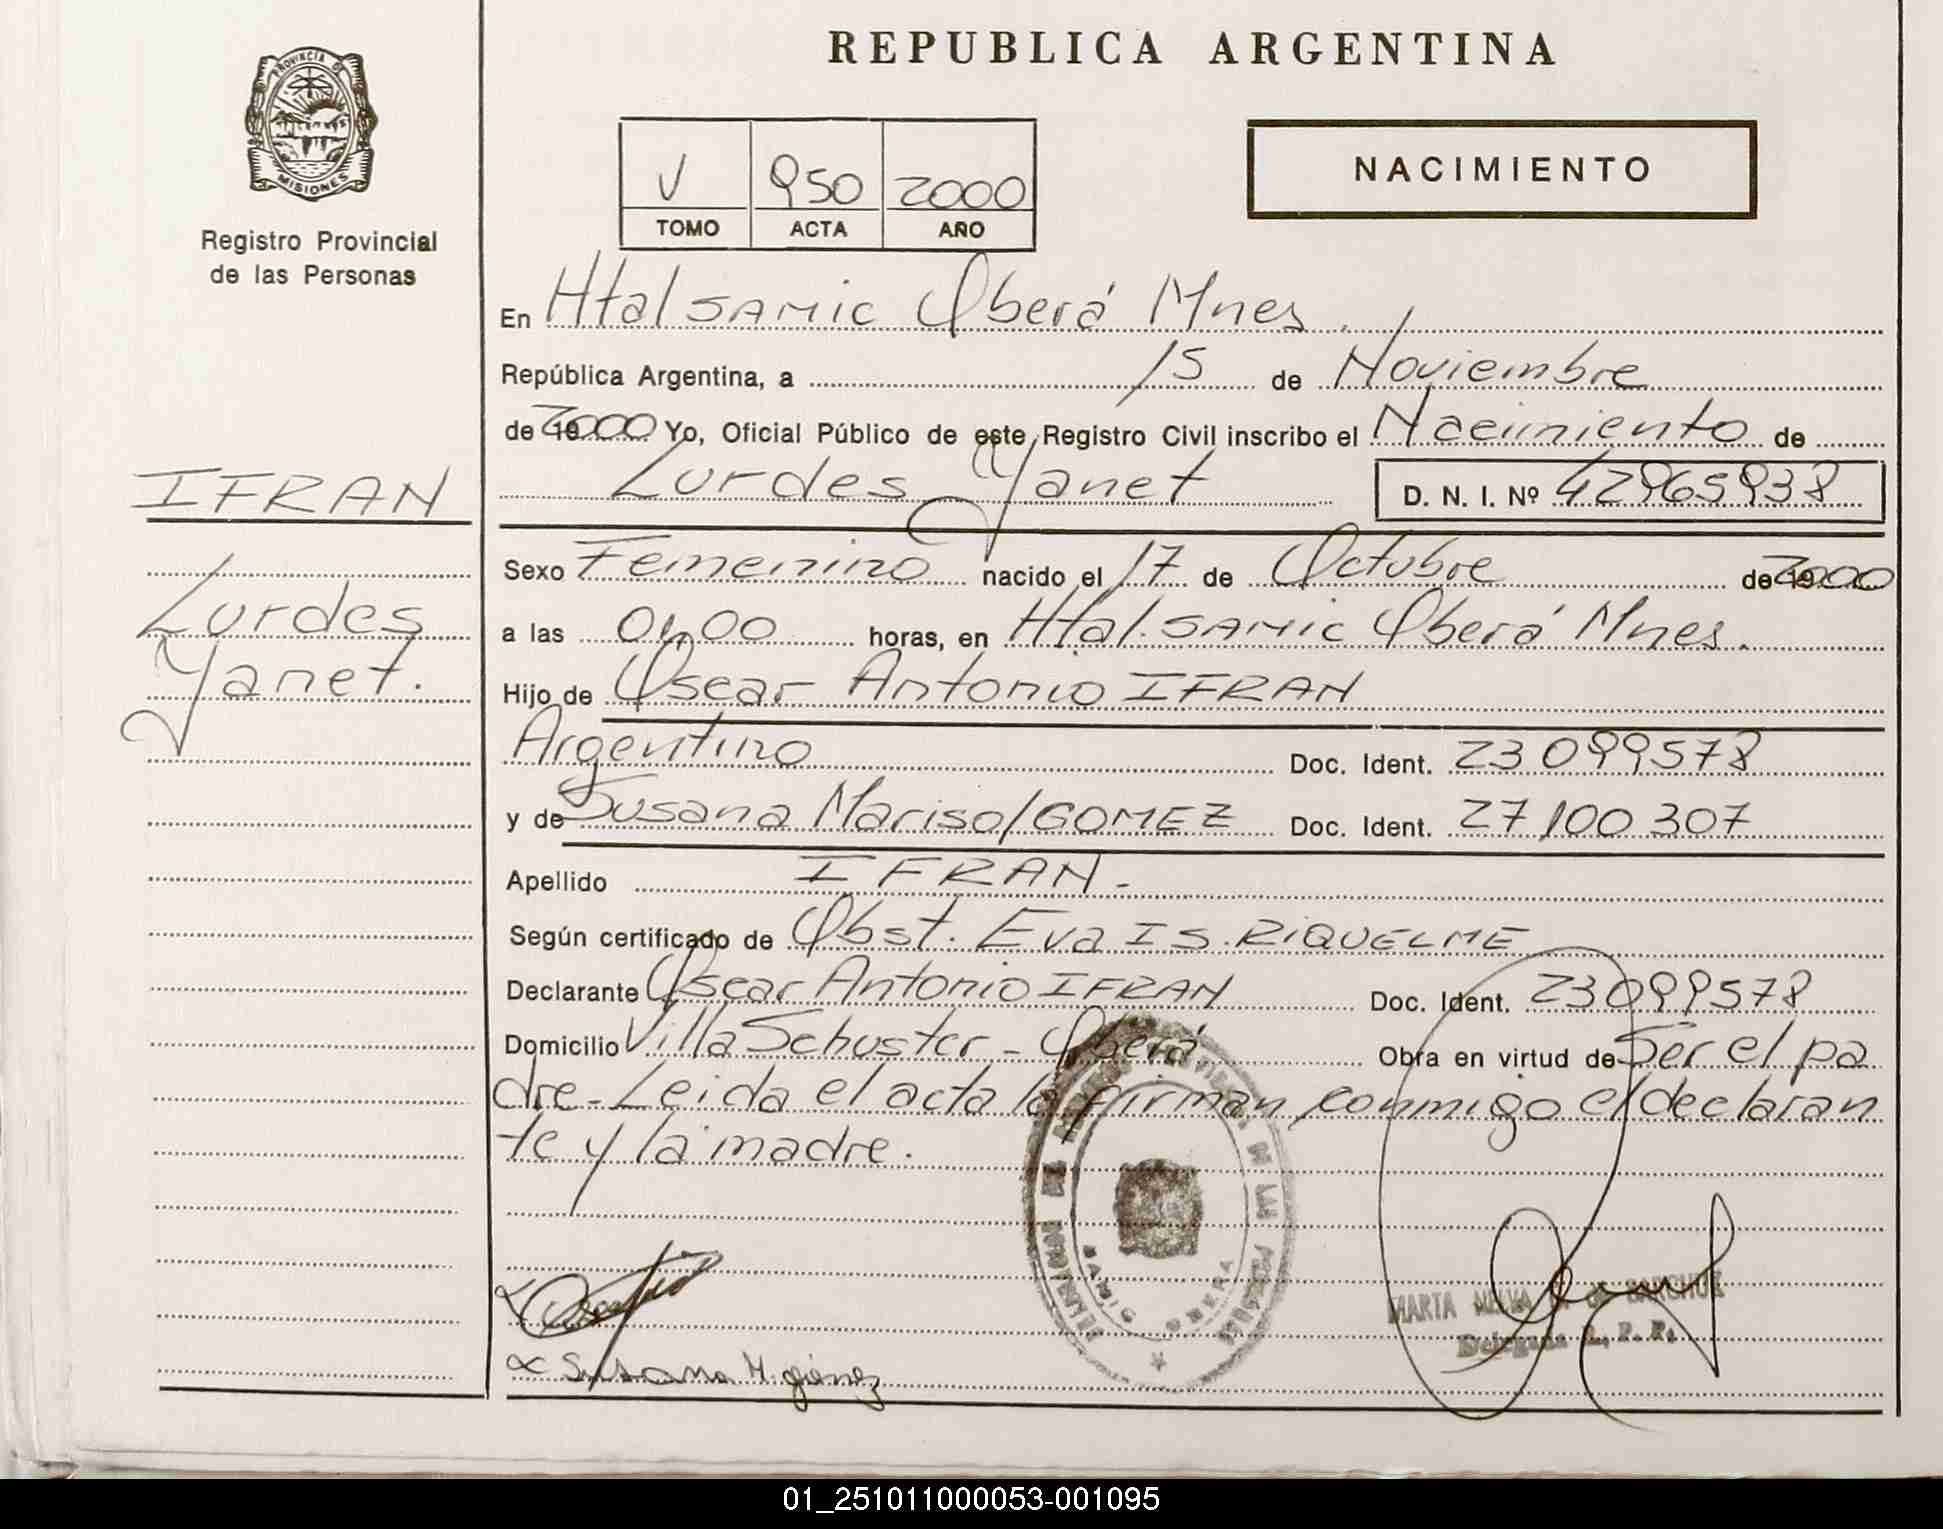 REPUBLICA ARGENTINA
PROVINCIA DE
MISIONES
Registro Provincial
de las Personas
V 950 2000
TOMO ACTA AÑO
NACIMIENTO
En Htal SAMIC Oberá Mnes.
República Argentina, a 15 de Noviembre
de 2000 Yo, Oficial Público de este Registro Civil inscribo el Nacimiento de
Lurdes Yanet D. N. I. Nº 42965938
IFRAN
Lurdes
Yanet.
Sexo Femenino nacido el 17 de Octubre de 2000
a las 01,00 horas, en Htal. SAMIC Oberá Mnes.
Hijo de Oscar Antonio IFRAN
Argentino Doc. Ident. 23 099578
y de Susana Marisol GOMEZ Doc. Ident. 27 100 307
Apellido IFRAN.-
Según certificado de Obst. Eva IS. RIQUELME
Declarante Oscar Antonio IFRAN Doc. Ident. 23099578
Domicilio Villa Schuster - Oberá Obra en virtud de Ser el pa
dre - Leida el acta la firman conmigo el declaran
te y la madre.
SAMIC OBERA
MARTA
Delegada R. P. P.
Susana M. gómez
01_251011000053-001095